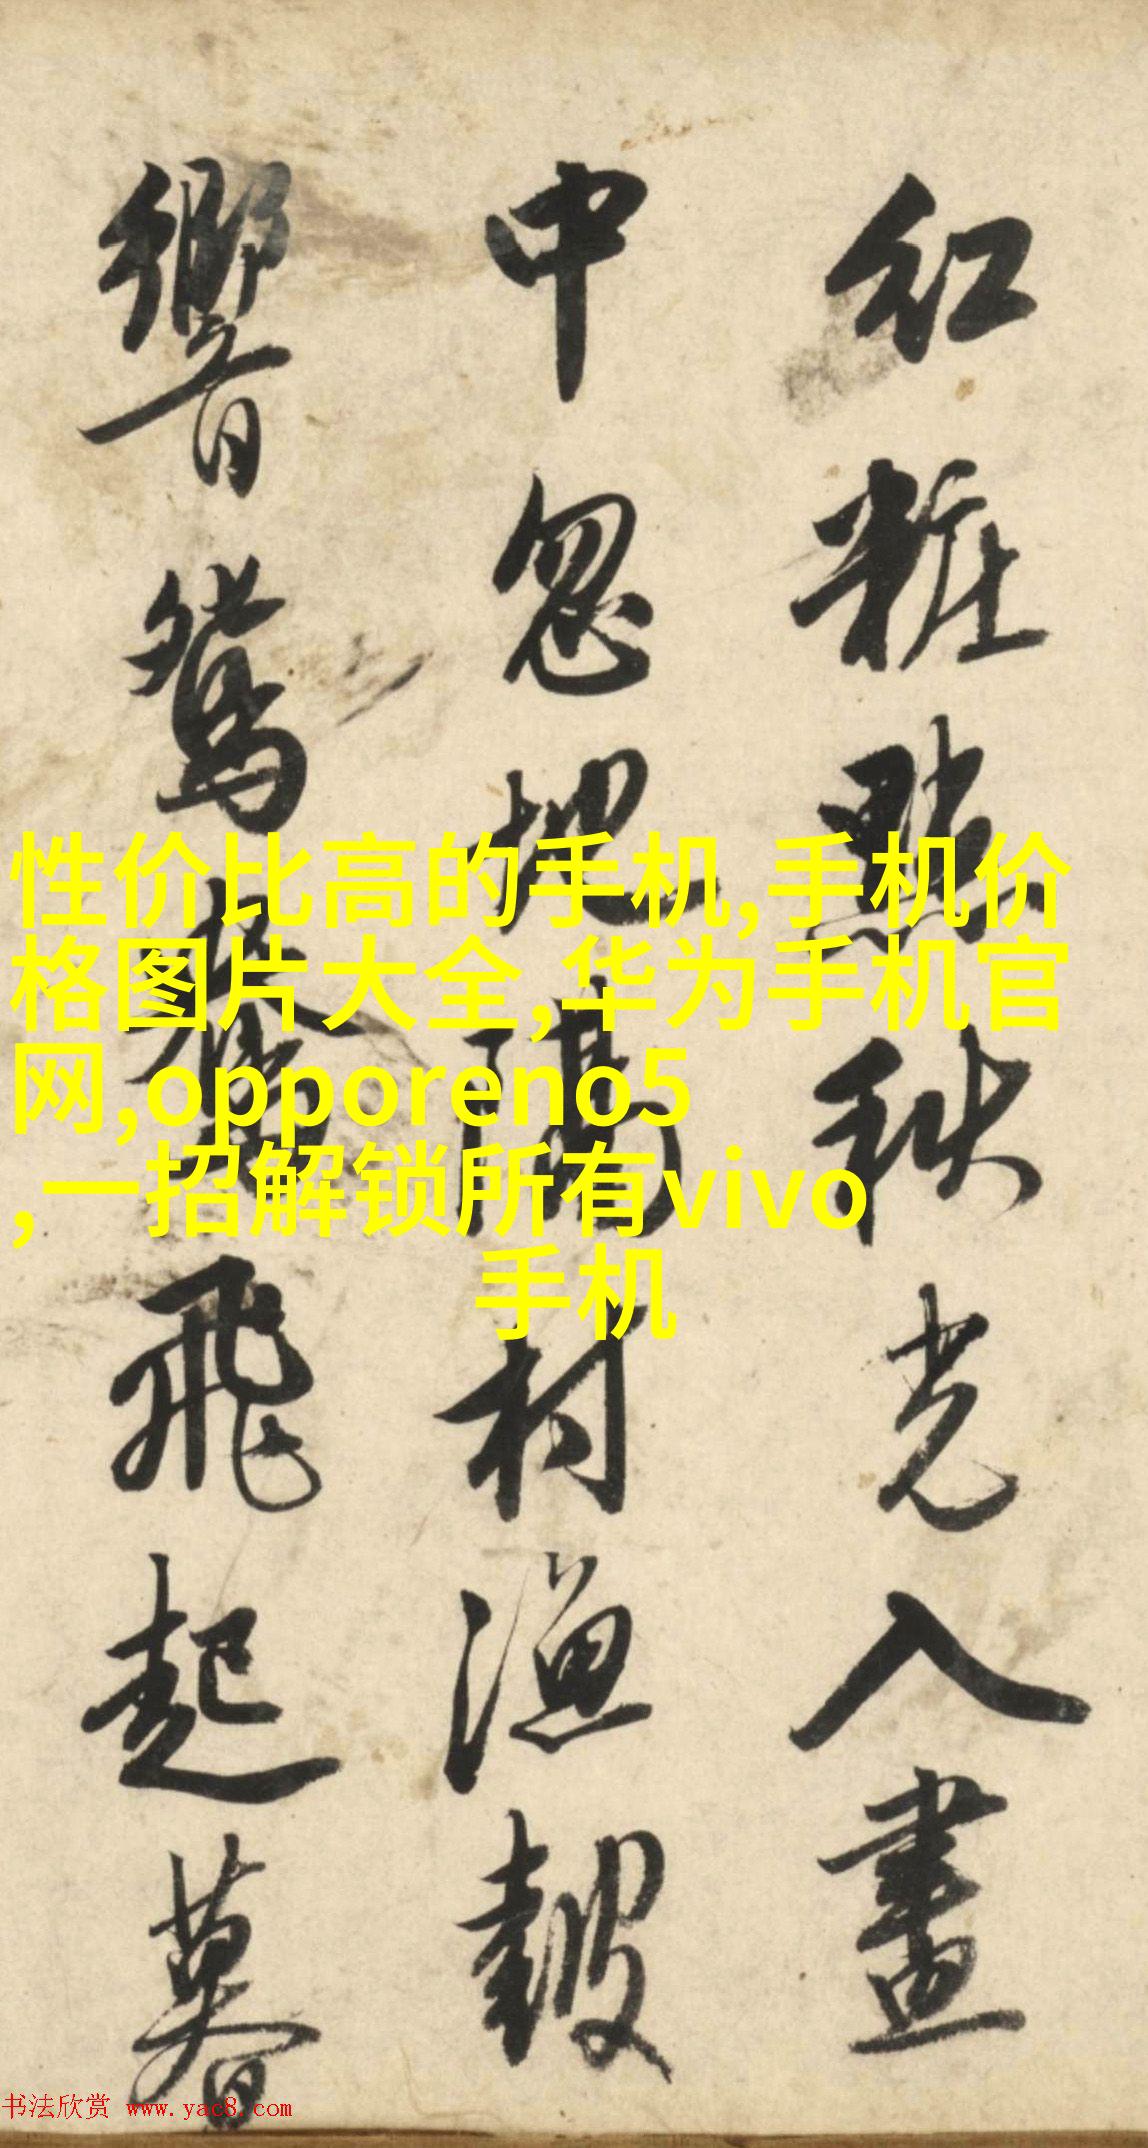 紅粧點秋光入畫
中忽地隔村漁皷
響鴛鴦飛起暮
性价比高的手机,手机价
格图片大全,华为手机官
网,opporeno5
,一招解锁所有vivo
手机
书法欣赏 www.yac8.com